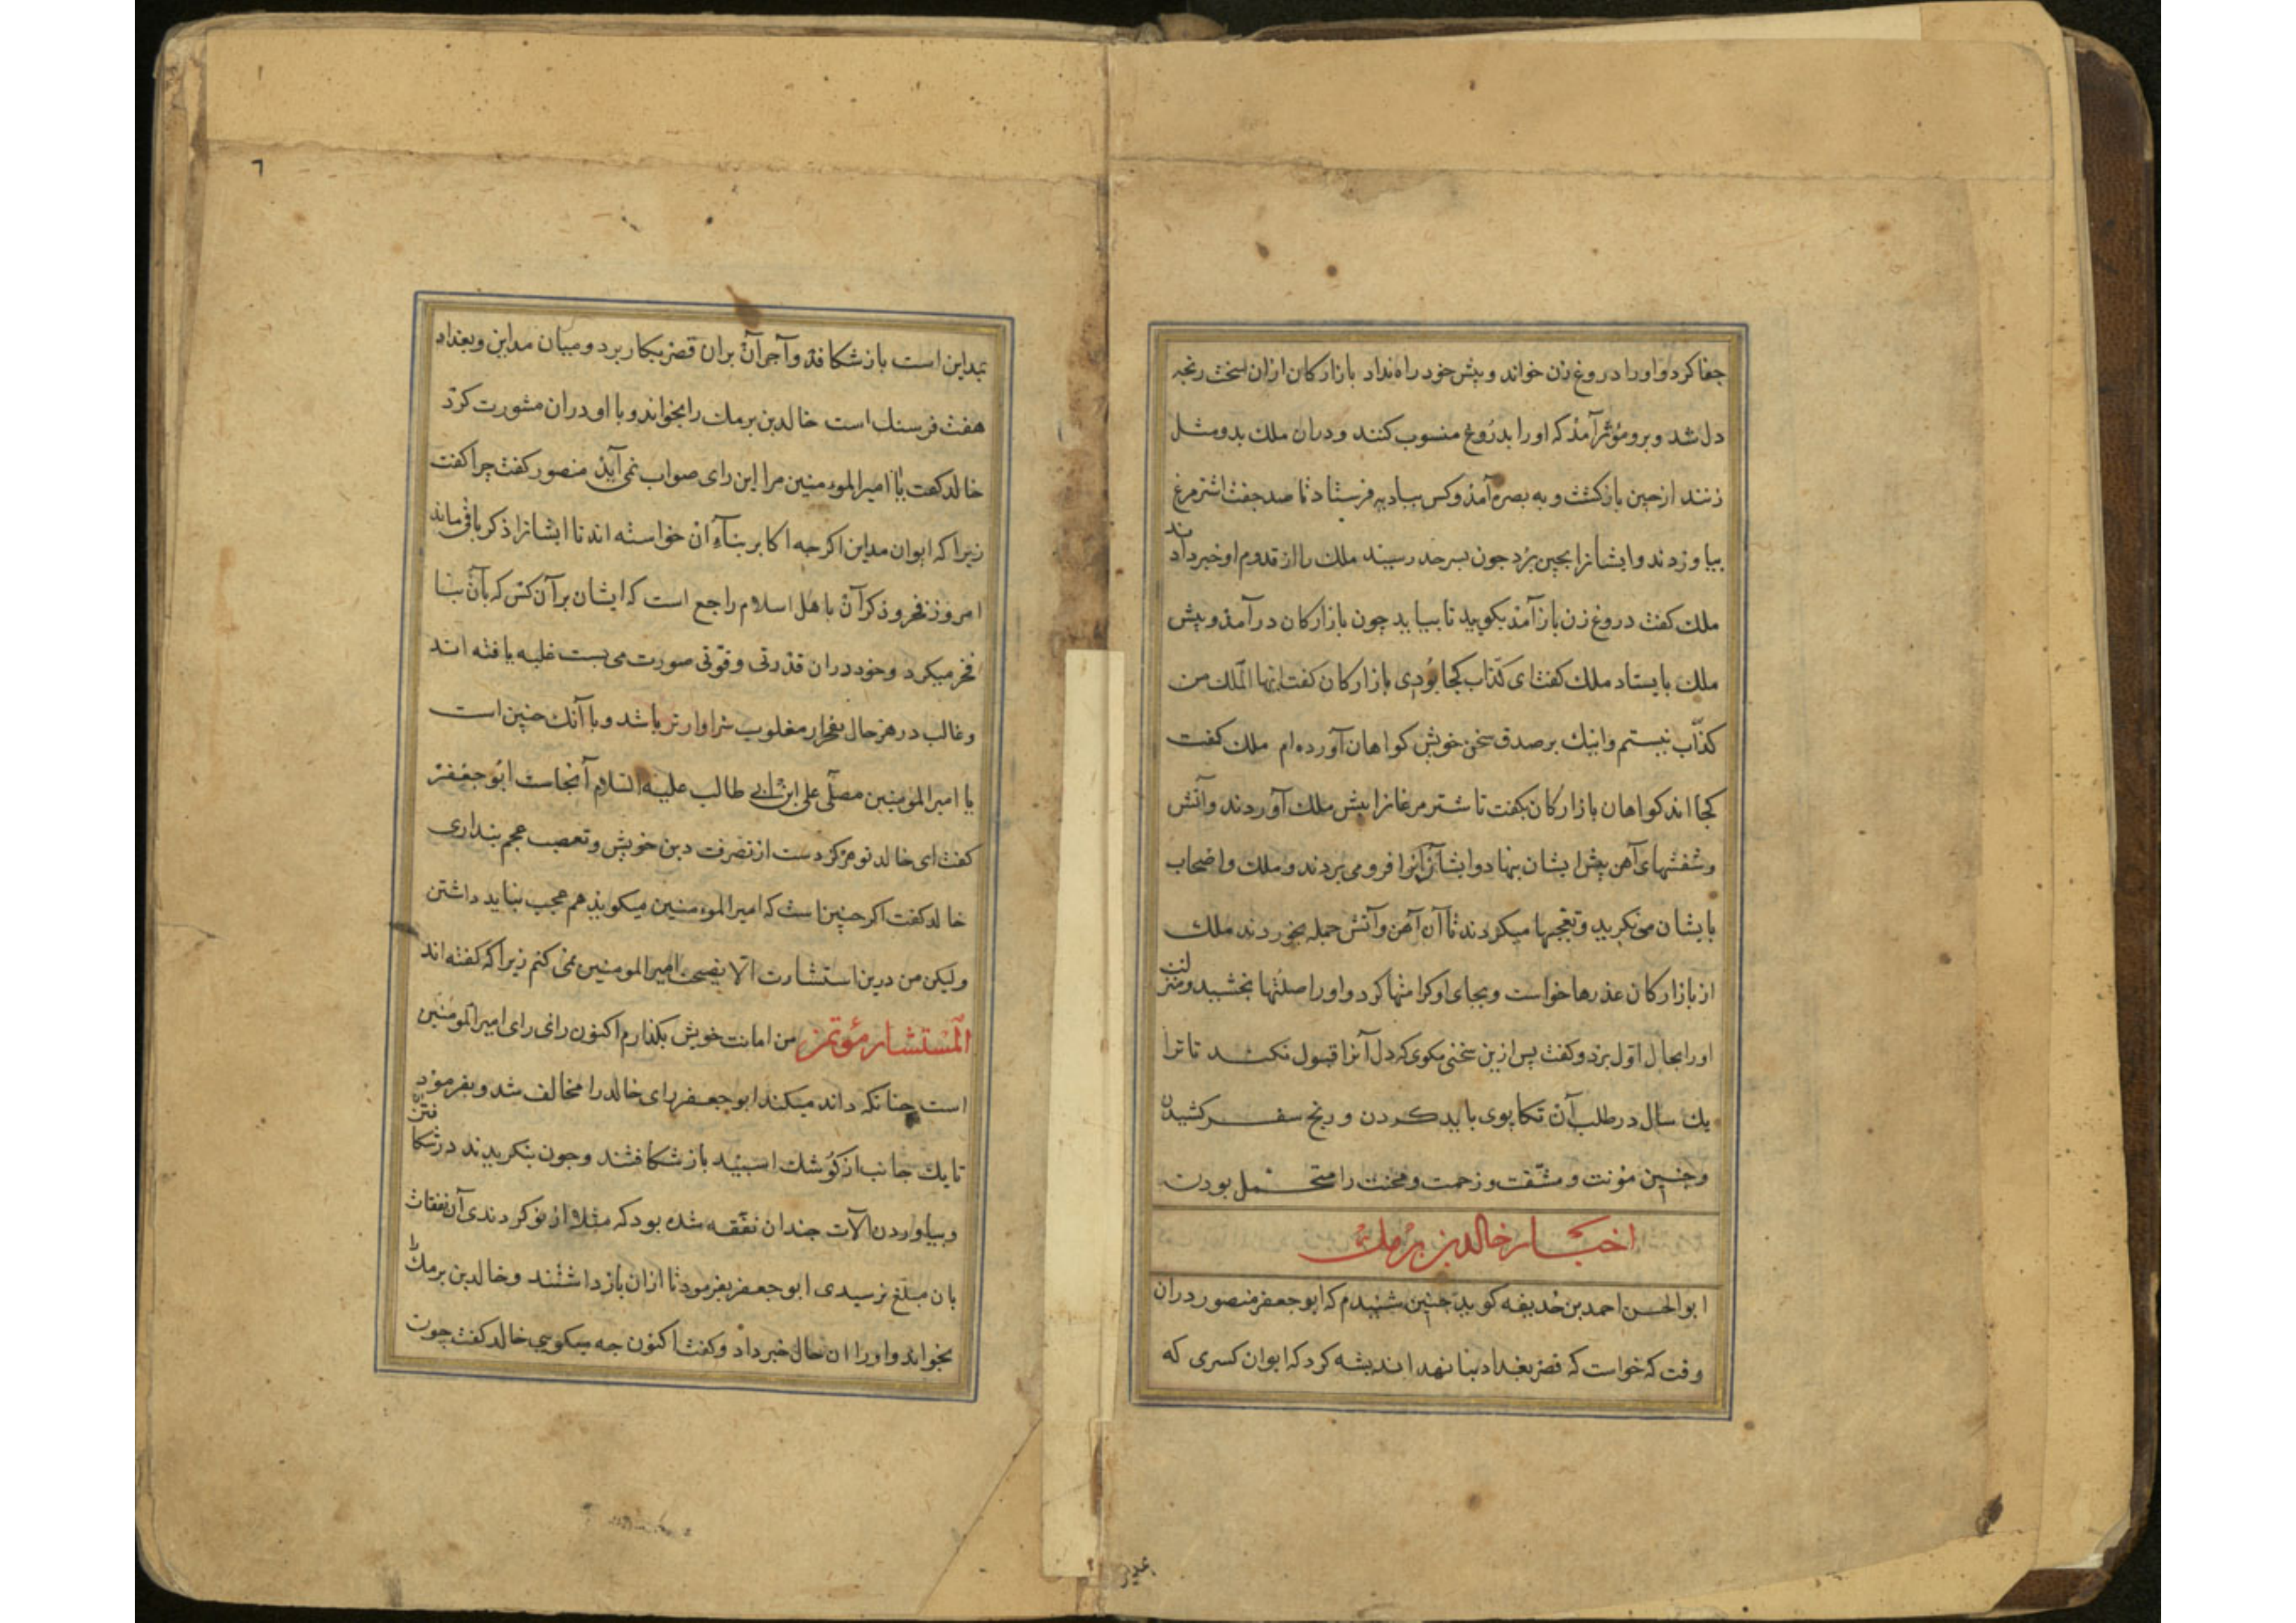 جفا کرد و او را دروغ زن خواند و پیش خود راه نداد بازارکان ازان سخت رنجه
دل شد و برو مؤثر آمذ که او را بدروغ منسوب کنند و دران ملک بدو مثل
زنند ازچین بازکشت و به بصره آمذ و کس ببادیه فرستاد تا صد جفت اشترمرغ
بیاوردند و ایشانرا بچین برد جون بسرحد رسیند ملک را از قدوم او خبر دادند
ملک کفت دروغ زن بازآمذ بکویید تا بیاید چون بازارکان درآمذ و پیش
ملک بایستاد ملک کفت ای کذّاب کجا بودی بازارکان کفت ایّها الملک من
کذّاب نیستم و اینک بر صدق سخن خویش کواهان آورده ام ملک کفت
کجااند کواهان بازارکان بکفت تا شترمرغانرا پیش ملک آوردند و آتش
و شفشهای آهن پیش ایشان بنهاد و ایشان آنرا فرو می بردند و ملک و اصحاب
بایشان می نکرید و تعجبها میکردند تا آن آهن و آتش جمله بخوردند ملک
از بازارکان عذرها خواست و بجای او کرامتها کرد و او را صلتها بخشید و منزلت
او را بحال اوّل برد و کفت پس ازین سخنی مکوی که دل آنرا قبول نکند تا ترا
یک سال در طلب آن تکاپوی باید کردن و رنج سفر کشیدن
و چنین مؤنت و مشقّت و زحمت و محنت را متحمل بودن
اخبار خالد بن برمک
ابوالحسن احمد بن خدیفه کوید چنین شنیدم که ابوجعفر منصور دران
وقت که خواست که قصر بغداد بنا نهد اندیشه کرد که ایوان کسری که
بمداین است باز شکافد و آجر آن بران قصر بکار برد و میان مداین و بغداد
هفت فرسنک است خالد بن برمک را بخواند و با او دران مشورت کرد
خالد کفت یا امیر المومنین مرا این رای صواب نمی آید منصور کفت چرا کفت
زیرا که ایوان مداین اکرچه اکابر بناء آن خواسته اند تا ایشانرا ذکر باقی ماند
امروز فخر و ذکر آن باهل اسلام راجع است که ایشان بر آن کس که بآن بنا
فخر میکرد و خود دران قدرتی و قوّتی صورت می بست غلبه یافته اند
و غالب در هر حال بفخر از مغلوب سزاوارتر باشد و با آنک چنین است
یا امیر المومنین مصلّی علی ابن ابی طالب علیه السلام آنجاست ابوجعفر
کفت ای خالد تو هرکز دست از نصرت دین خویش و تعصب عجم بنداری
خالد کفت اکر چنین است که امیر المومنین میکوید هم عجب نباید داشتن
ولیکن من درین استشارت الا نصیحت امیر المومنین نمی کنم زیرا که کفته اند
المستشار مؤتمن من امانت خویش بکذارم اکنون رای رای امیر المومنین
است چنانکه داند میکند ابوجعفر رای خالد را مخالف شد و بفرمود
تا یک جانب از کوشک اسپید باز شکافتند و جون بنکریدند در شکافتن
و بیاوردن آلات چندان نفقه شده بود که مثلا از نو کردندی آن نفقات
بان مبلغ نرسیدی ابوجعفر بفرمود تا ازان بازداشتند و خالد بن برمک را
بخواند و او را ازان حال خبر داد و کفت اکنون چه میکویی خالد کفت چون